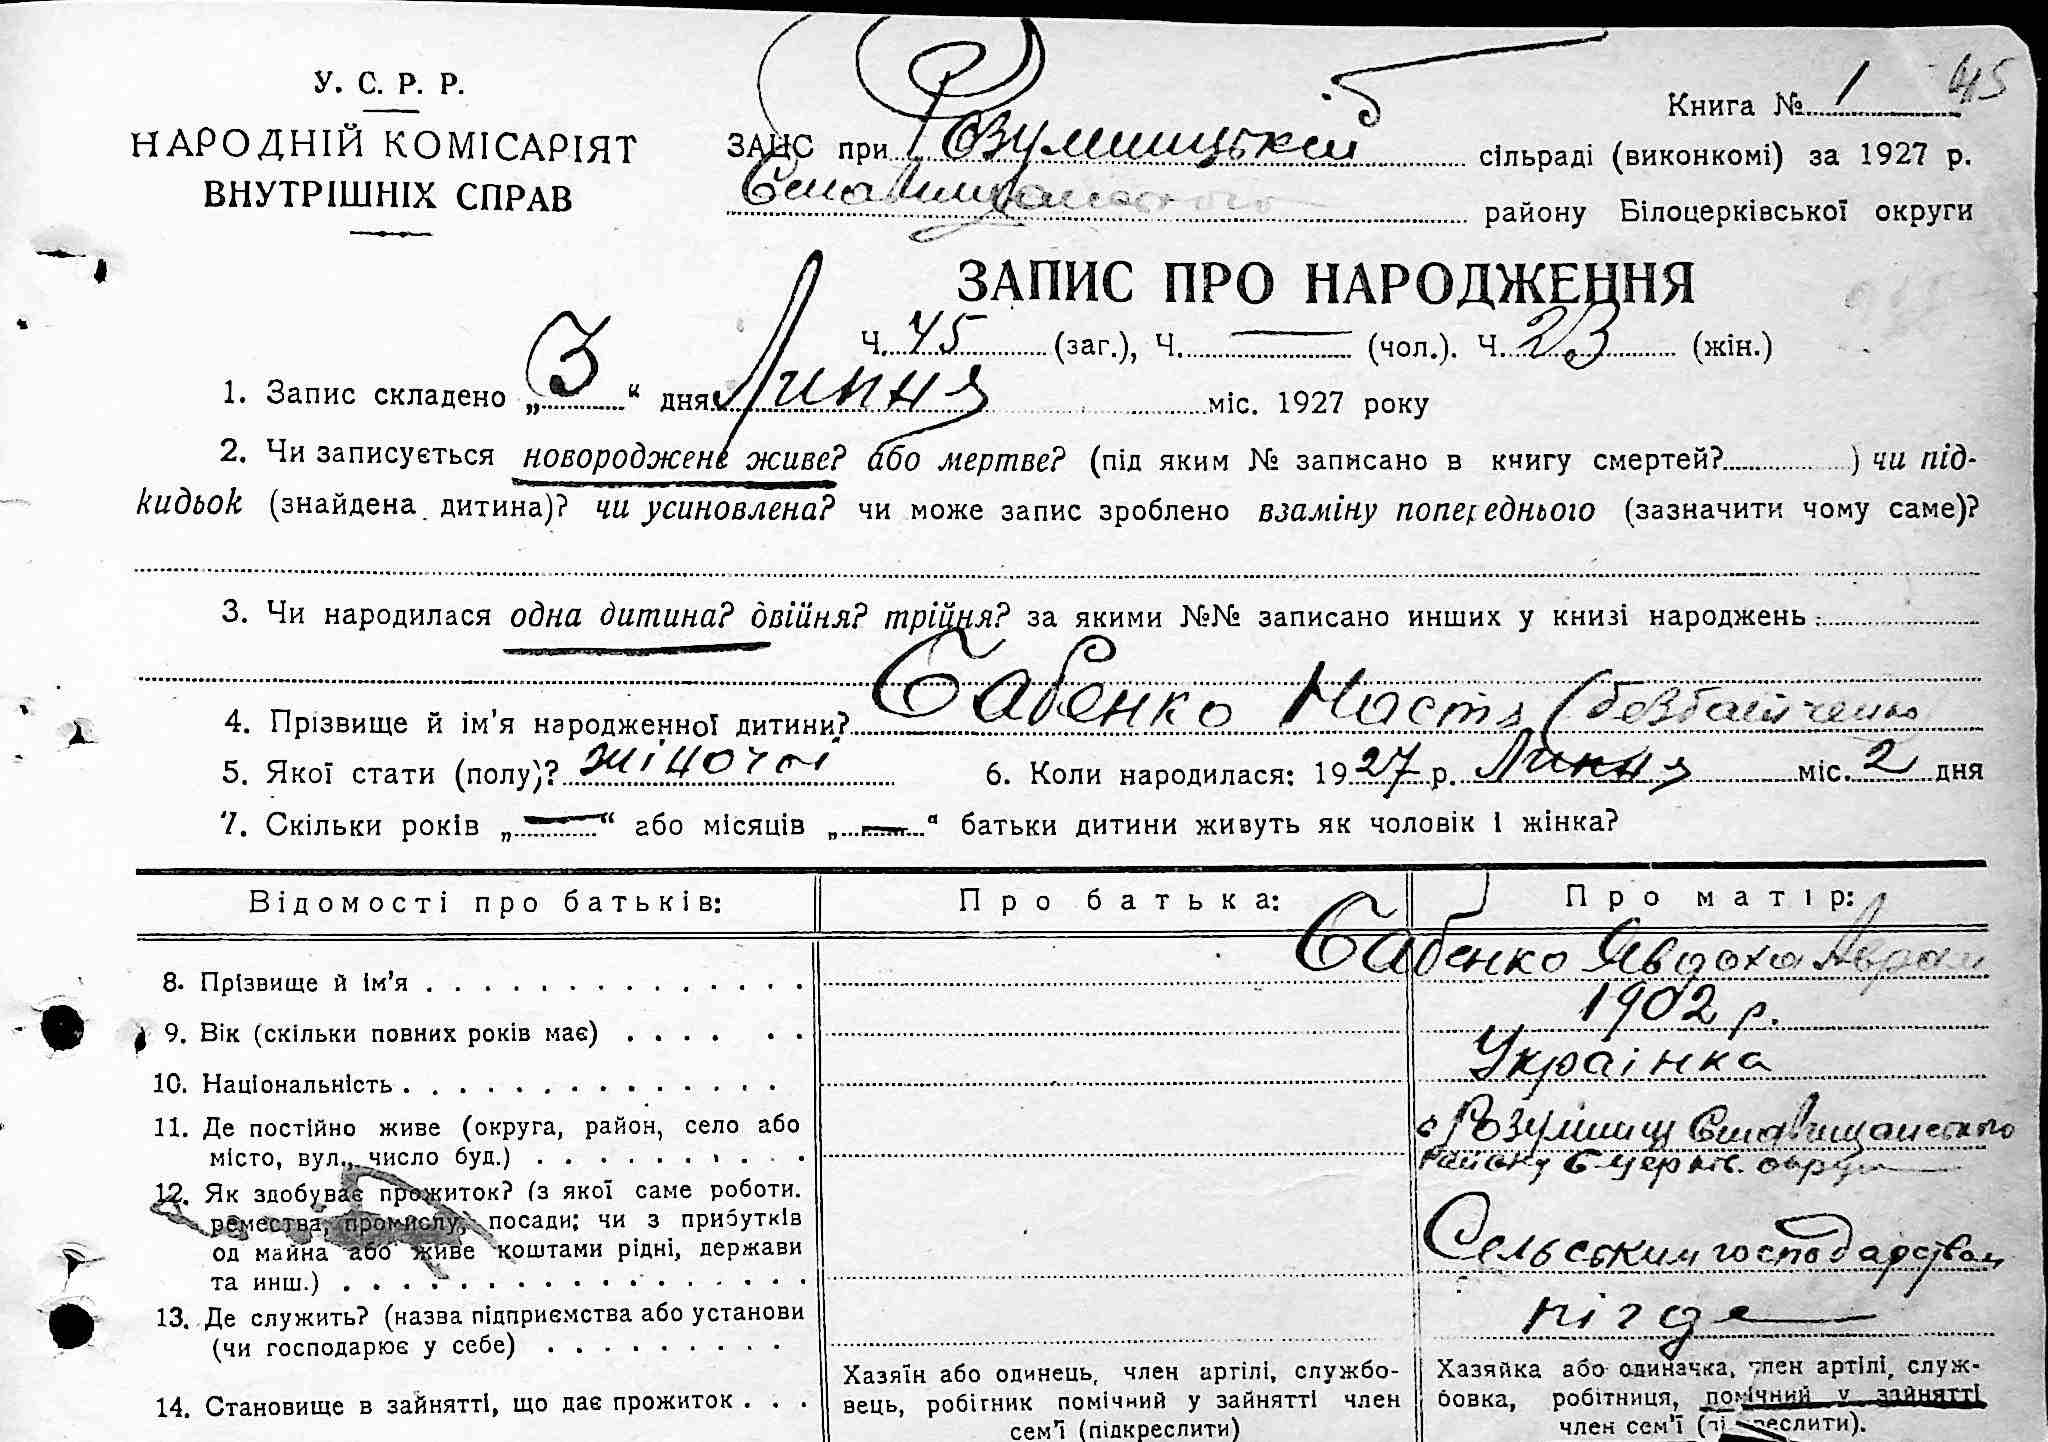 У. С. Р. Р.
НАРОДНІЙ КОМІСАРІЯТ
ВНУТРІШНІХ СПРАВ
Книга № 1 45
ЗАЦС при Розумницькій сільраді (виконкомі) за 1927 р.
Ставищанського району Білоцерківської округи
ЗАПИС ПРО НАРОДЖЕННЯ
Ч. 45 (заг.), Ч. — (чол.). Ч. 23 (жін.)
1. Запис складено „3“ дня Липня міс. 1927 року
2. Чи записується новороджене живе? або мертве? (під яким № записано в книгу смертей? ) чи під-
кидьок (знайдена дитина)? чи усиновлена? чи може запис зроблено взаміну попереднього (зазначити чому саме)?
3. Чи народилася одна дитина? двійня? трійня? за якими №№ записано инших у книзі народжень
4. Прізвище й ім'я народженної дитини? Бабенко Настя
5. Якої стати (полу)? жіночої 6. Коли народилася: 1927 р. Липня міс. 2 дня
7. Скільки років „—“ або місяців „—“ батьки дитини живуть як чоловік і жінка?
Відомості про батьків: Про батька: Про матір:
8. Прізвище й ім'я Бабенко Явдоха
9. Вік (скільки повних років має) 1902 р.
10. Національність Українка
11. Де постійно живе (округа, район, село або с Розумниц Ставищанського
місто, вул., число буд.) району Б-церків. округи
12. Як здобуває прожиток? (з якої саме роботи.
ремества, промислу, посади; чи з прибутків
од майна або живе коштами рідні, держави Сельським господарством
та инш.)
13. Де служить? (назва підприємства або установи нігде
(чи господарює у себе)
14. Становище в зайнятті, що дає прожиток
Хазяїн або одинець, член артілі, службо-
вець, робітник помічний у зайнятті член
сем'ї (підкреслити)
Хазяйка або одиначка, член артілі, служ-
бовка, робітниця, помічний у зайнятті
член сем'ї (підкреслити).